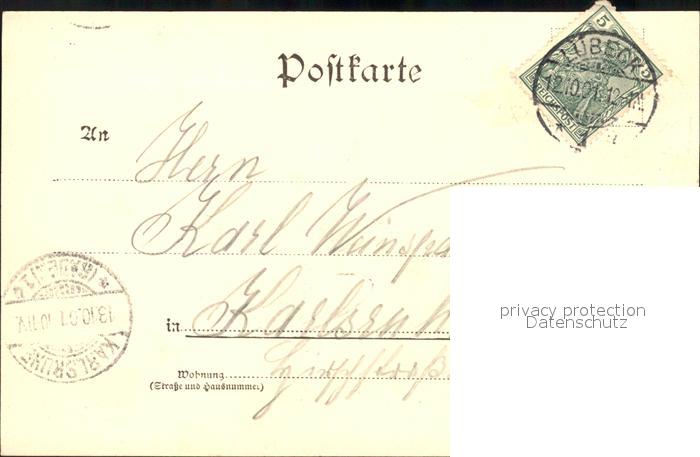 Postkarte
5
LÜBECK
12.10.01.12-1N
REICHSPOST
An
Herrn
Karl
in Karlsruh
Wohnung
(Straße und Hausnummer)
KARLSRUHE
13.10.01.10-11V.
(BADEN)
privacy protection
Datenschutz